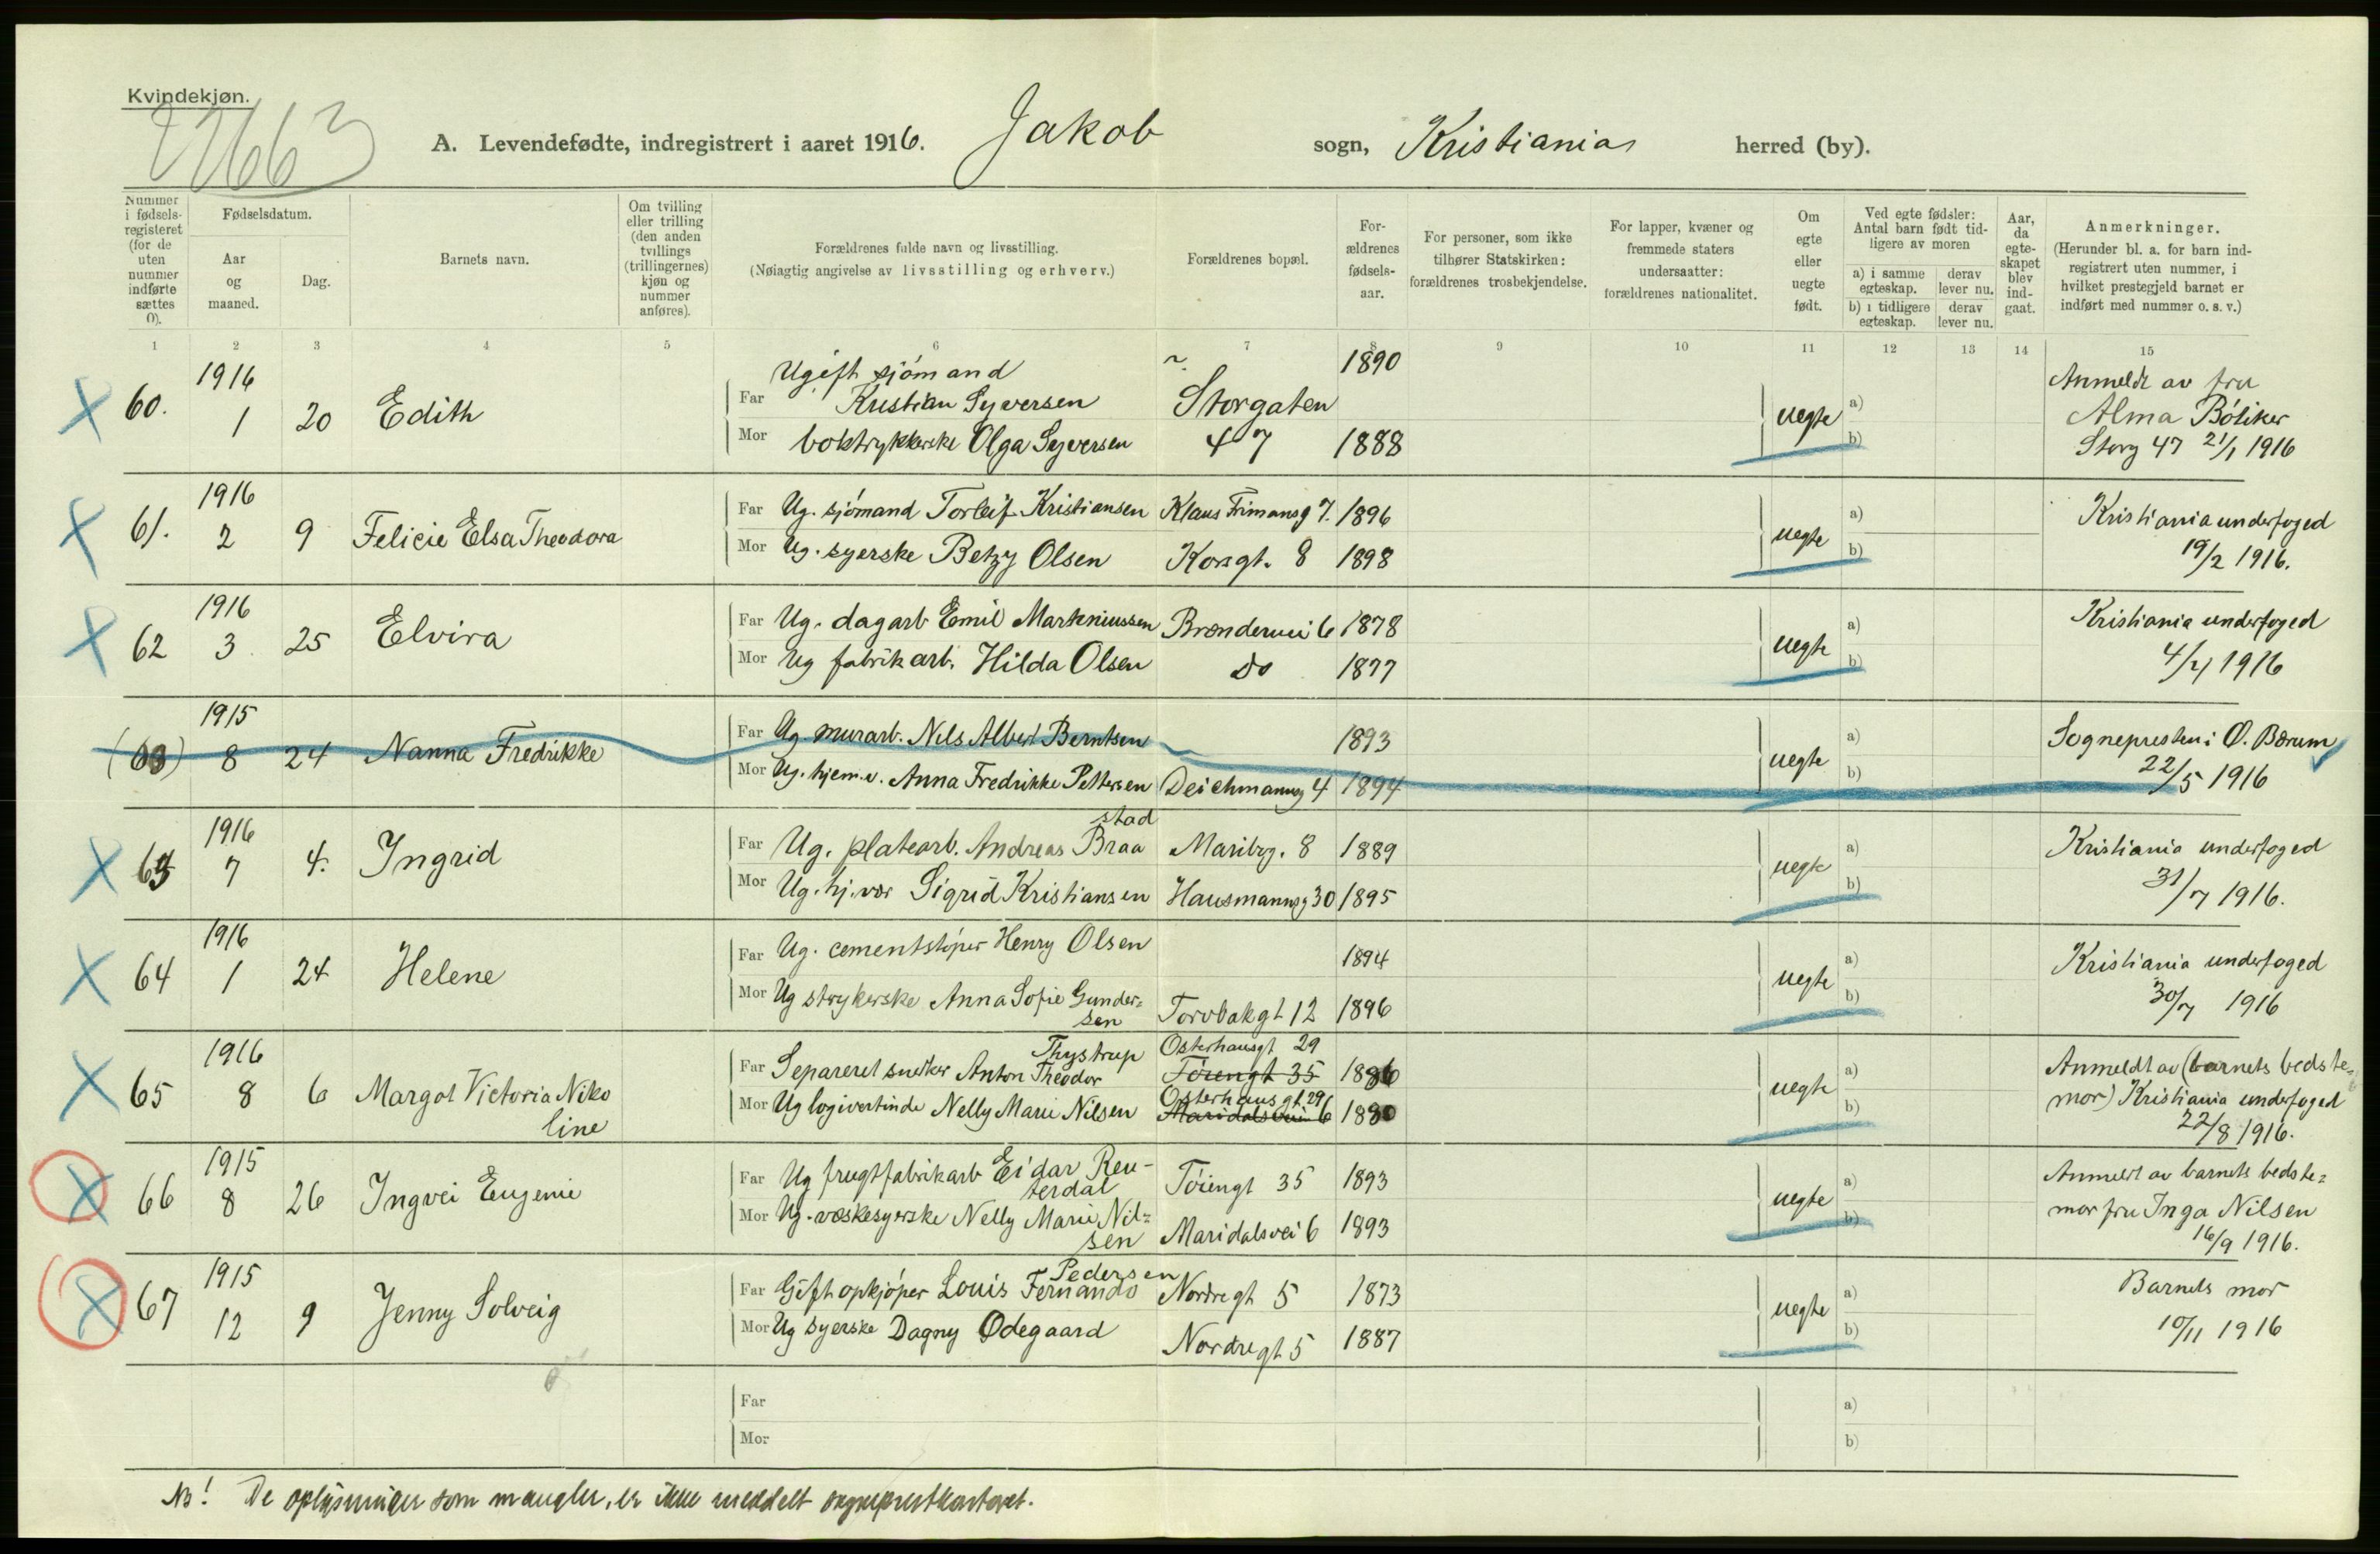 Kvindekjøn.
22663
A. Levendefødte, indregistrert i aaret 1916. Jakob sogn, Kristiania herred (by).
Nummer i fødsels-registeret (for de uten nummer indførte sættes 0).
Fødselsdatum.
Aar og maaned.
Dag.
Barnets navn.
Om tvilling eller trilling (den anden tvillings (trillingernes) kjøn og nummer anføres).
Forældrenes fulde navn og livsstilling.
(Nøiagtig angivelse av livsstilling og erhverv.)
Forældrenes bopæl.
For-ældrenes fødsels-aar.
For personer, som ikke tilhører Statskirken: forældrenes trosbekjendelse.
For lapper, kvæner og fremmede staters undersaatter: forældrenes nationalitet.
Om egte eller uegte født.
Ved egte fødsler: Antal barn født tid-ligere av moren
a) i samme egteskap.
derav lever nu.
b) i tidligere egteskap.
derav lever nu.
Aar, da egte-skapet blev ind-gaat.
Anmerkninger.
(Herunder bl. a. for barn ind-registrert uten nummer, i hvilket prestegjeld barnet er indført med nummer o. s. v.)
1 2 3 4 5 6 7 8 9 10 11 12 13 14 15
60. 1916 1 20 Edith
Far Ugift sjømand Kristian Syversen ~ 1890
Mor boktrykkerske Olga Syversen Storgaten 47 1888
uegte a) b)
Anmeldt av fru
Alma Bøtiker
Storg 47 21/1 1916
61. 1916 2 9 Felicie Elsa Theodora
Far Ug. sjømand Torleif Kristiansen Klaus Frimansg 7. 1896
Mor Ug. syerske Betzy Olsen Korsgt. 8 1898
uegte a) b)
Kristiania underfoged
19/2 1916.
62 1916 3 25 Elvira
Far Ug. dagarb Emil Martiniussen Brænderivei 6 1878
Mor Ug fabrikarb. Hilda Olsen do 1877
uegte a) b)
Kristiania underfoged
4/4 1916
(63) 1915 8 24 Nanna Fredrikke
Far Ug. murarb. Nils Albert Berntsen 1893
Mor Ug. hjem.v. Anna Fredrikke Pettersen Deichmannsg 4 1894
uegte a) b)
Sognepresten i Ø. Bærum
22/5 1916
63 1916 7 4. Ingrid
Far Ug. platearb. Andreas Braastad Maribog. 8 1889
Mor Ug. hj.vær Sigrid Kristiansen Hausmannsg 30 1895
uegte a) b)
Kristiania underfoged
31/7 1916.
64 1916 1 24 Helene
Far Ug. cementstøper Henry Olsen 1894
Mor Ug strykerske Anna Sofie Gunder=sen Torvbakgt 12 1896
uegte a) b)
Kristiania underfoged
30/7 1916
65 1916 8 6 Margot Victoria Nikoline
Far Separeret snekker Anton Theodor Thystrup Osterhausgt 29 Tøiengt 35 1886
Mor Ug logivertinde Nelly Marie Nilsen Osterhausgt 29 Maridalsveien 6 1880
uegte a) b)
Anmeldt av (barnets bedste=
mor) Kristiania underfoged
22/8 1916.
66 1915 8 26 Ingvei Eugenie
Far Ug frugtfabrikarb Eidar Reu-terdal Tøiengt 35 1893
Mor Ug. væskesyerske Nelly Marie Nil=sen Maridalsvei 6 1893
uegte a) b)
Anmeldt av barnets bedste=
mor fru Inga Nilsen
16/9 1916.
67 1915 12 9 Jenny Solveig
Far Gift opkjøper Louis Fernando Pedersen Nordregt 5 1873
Mor Ug syerske Dagny Ødegaard Nordregt 5 1887
uegte a) b)
Barnets mor
10/11 1916
Far a)
Mor b)
NB! De oplysninger som mangler, er ikke meddelt sogneprestkontoret.